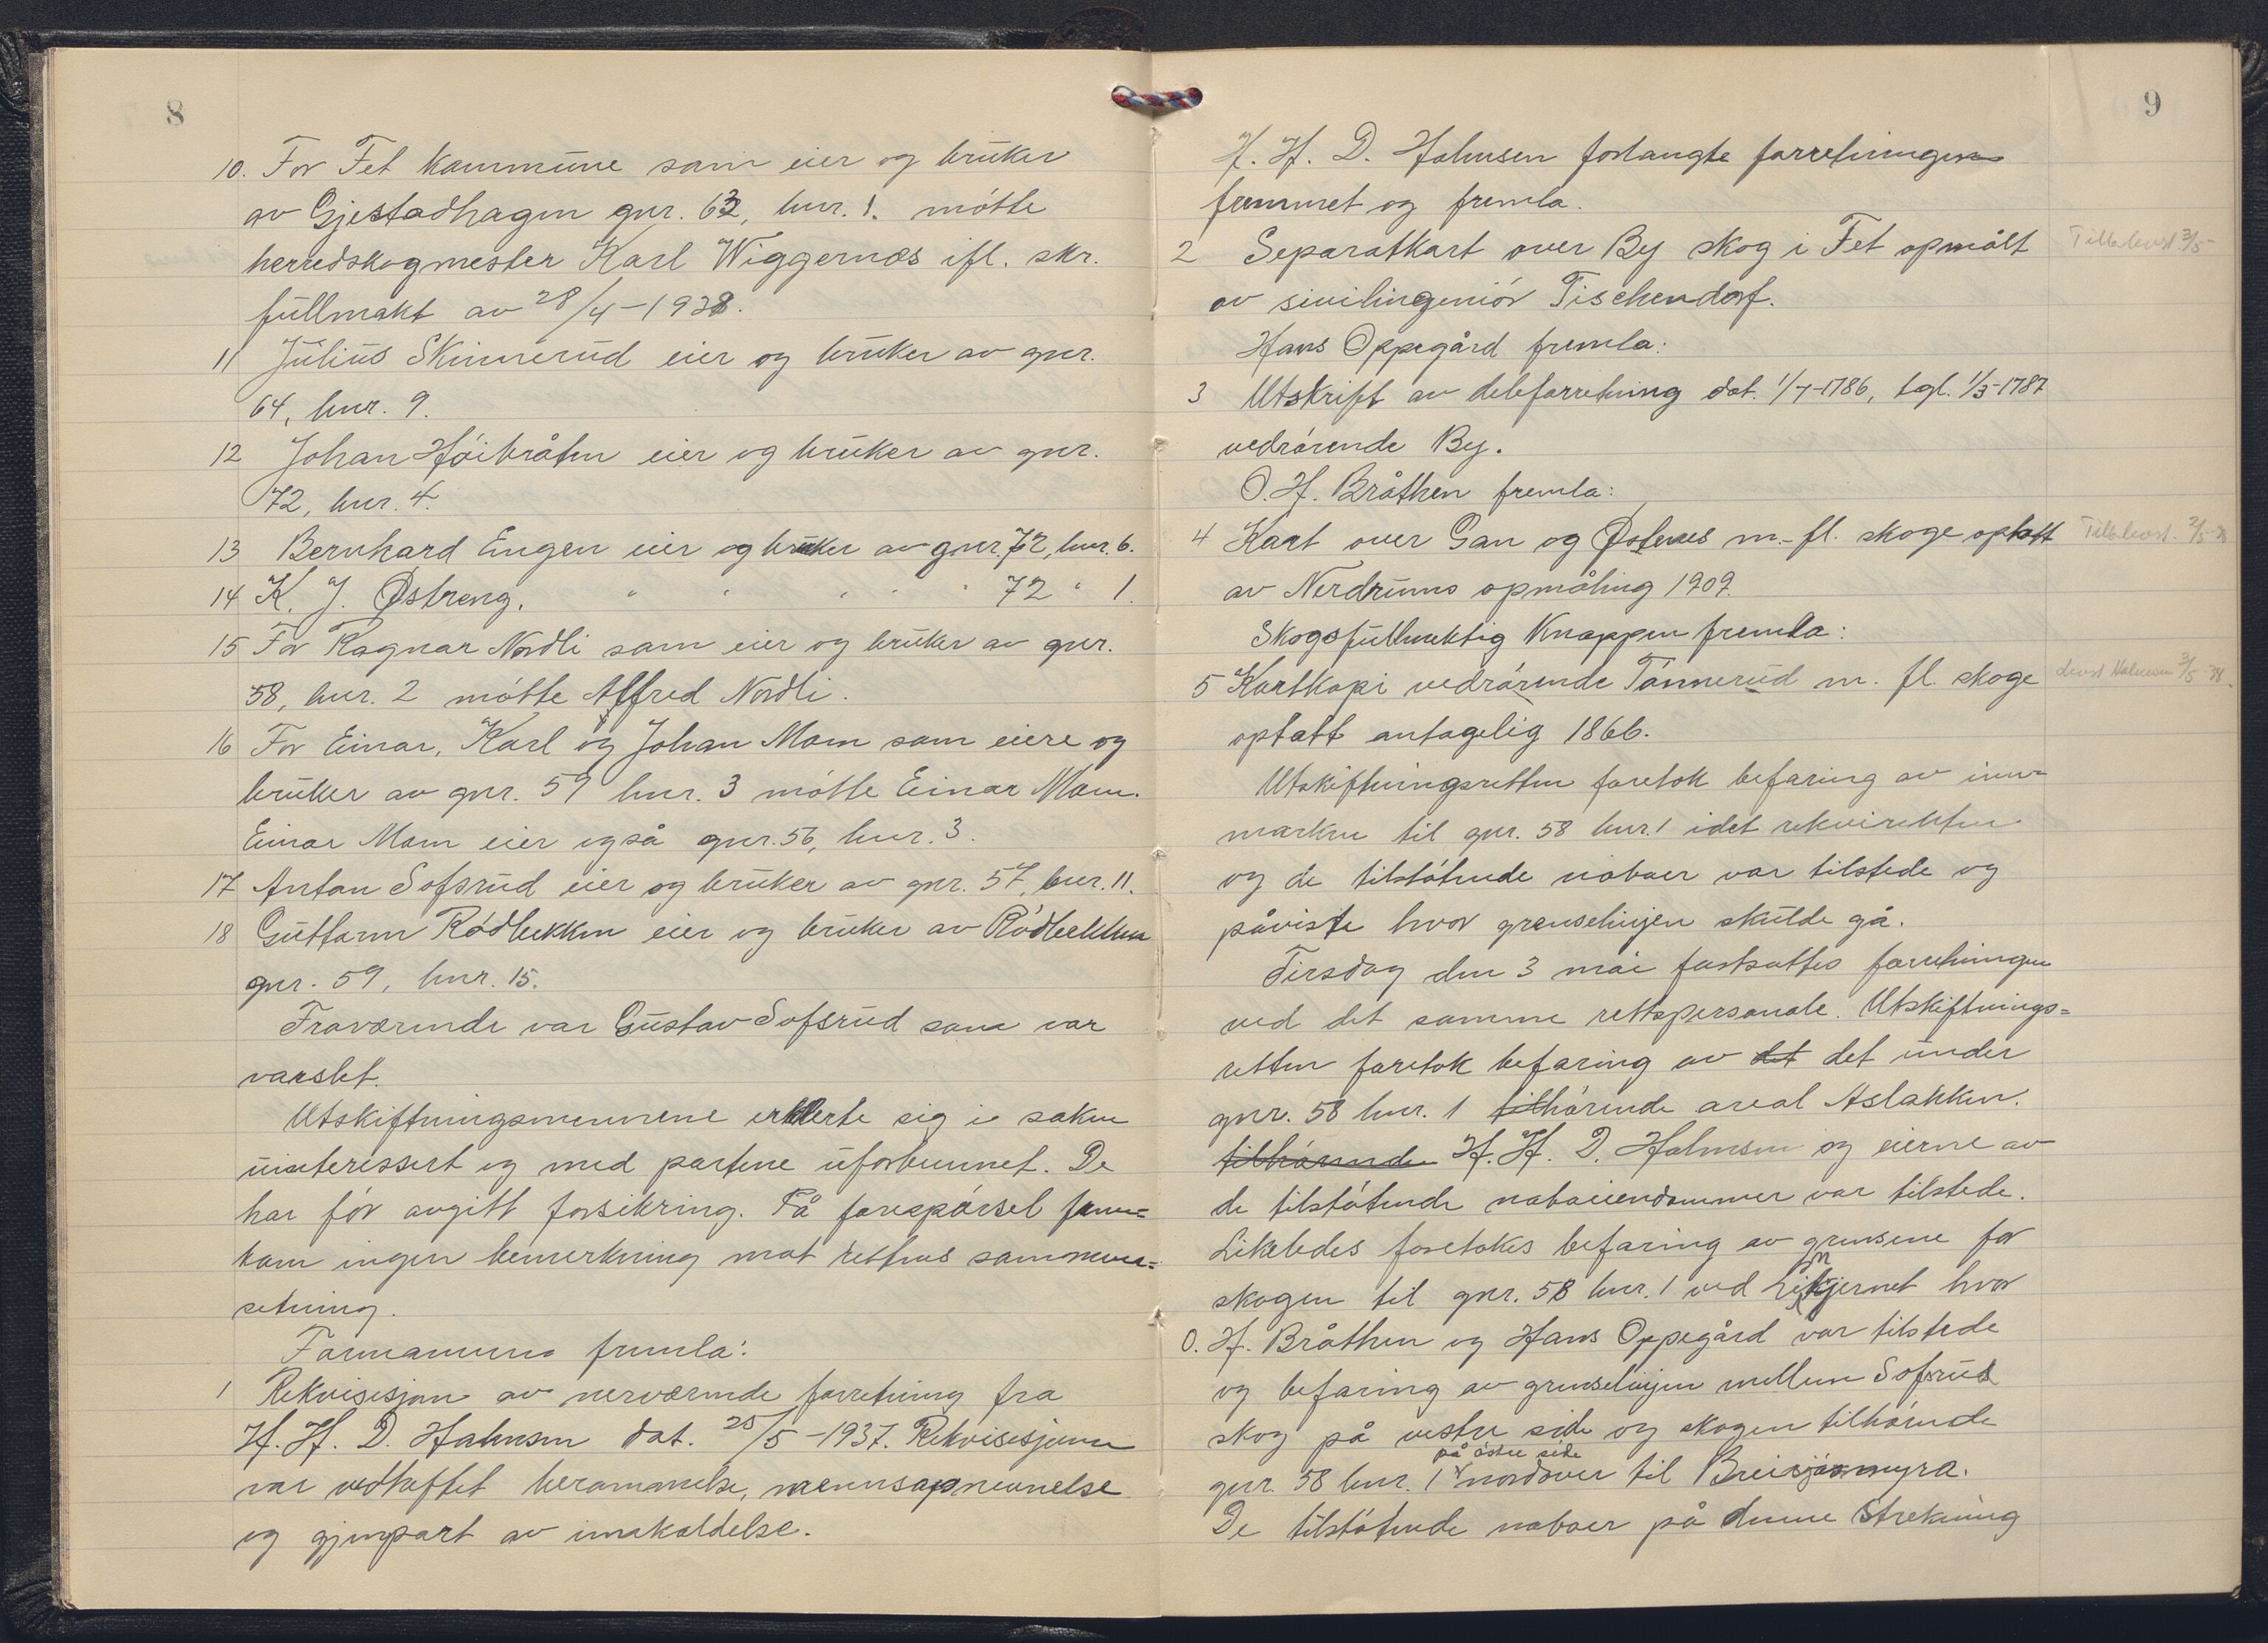 8
10. For Fet kommune som eier og bruker
av Gjestadhagen gnr. 63, bnr. 1. møtte
herredskogmester Karl Wiggernæs ifl. skr.
fullmakt av 28/4-1938.
11 Julius Skinnerud eier og bruker av gnr.
64, bnr. 9.
12 Johan Høibråten eier og bruker av gnr.
72, bnr. 4.
13 Bernhard Engen eier og bruker av gnr. 72, bnr. 6.
14 K. J. Østreng. " " " " " 72 " 1.
15 For Ragnar Nordli som eier og bruker av gnr.
58, bnr. 2 møtte Alfred Nordli.
16 For Einar, Karl og Johan Mam som eiere og
bruker av gnr. 59 bnr. 3 møtte Einar Mam.
Einar Mam eier også gnr. 56, bnr. 3.
17 Anton Sofsrud eier og bruker av gnr. 57, bnr. 11.
18 Guttorm Rødbekken eier og bruker av Rødbekken
gnr. 59, bnr. 15.
Fraværende var Gustav Sofsrud som var
varslet.
Utskiftningsmennene erklærte sig i saken
uinteressert og med partene uforbunnet. De
har før avgitt forsikring. På forespørsel frem=
kom ingen bemerkning mot rettens sammen=
setning.
Formannen fremla:
1 Rekvisisjon av nerværende forretning fra
H. H. D. Holmsen dat. 25/5-1937. Rekvisisjonen
var vedheftet berammelse, mennsopnevnelse
og gjenpart av innkaldelse.
9
H. H. D. Holmsen forlangte forretningen
fremmet og fremla.
2 Separatkart over By skog i Fet opmålt
av sivilingeniør Tischendorf.
Tilbakelevert 3/5-
Hans Oppegård fremla:
3 Utskrift av deleforretning dat. 1/7-1786, tgl. 1/3-1787
vedrørende By.
O. H. Bråthen fremla:
4 Kart over Gan og Østenes m. fl. skoge optatt
av Nerdrums opmåling 1909.
Skogsfullmektig Knappen fremla:
5 Kartkopi vedrørende Tønnerud m. fl. skoge
levert Holmsen 3/5-38.
optatt antagelig 1866.
Utskiftningsretten foretok befaring av inn-
marken til gnr. 58 bnr. 1 idet rekvirenten
og de tilstøtende naboer var tilstede og
påviste hvor grenselinjen skulde gå.
Tirsdag den 3 mai fortsattes forretningen
ved det samme rettspersonale. Utskiftnings=
retten foretok befaring av det det under
gnr. 58 bnr. 1 tilhørende areal Aslakken.
tilhørende H. H. D. Holmsen og eierne av
de tilstøtende naboeiendommer var tilstede.
Likeledes foretokes befaring av grensene for
skogen til gnr. 58 bnr. 1 ved hvor
O. H. Bråthen og Hans Oppegård var tilstede
og befaring av grenselinjen mellem Sofsrud
skog på vestre side og skogen tilhørende
gnr. 58 bnr. 1 på østre side nordover til Breisjøsmyra.
De tilstøtende naboer på denne strekning